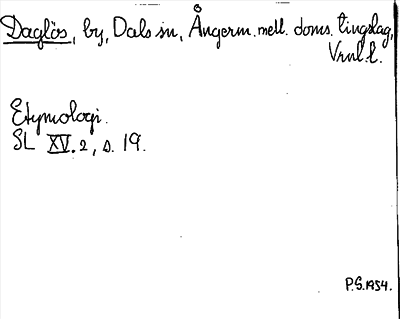 Daglös, by, Dals sn, Ångerm. mell. doms. tingslag,
Vrnl. l.
Etymologi.
SL XV. 2, s. 19.
P.S. 1954.